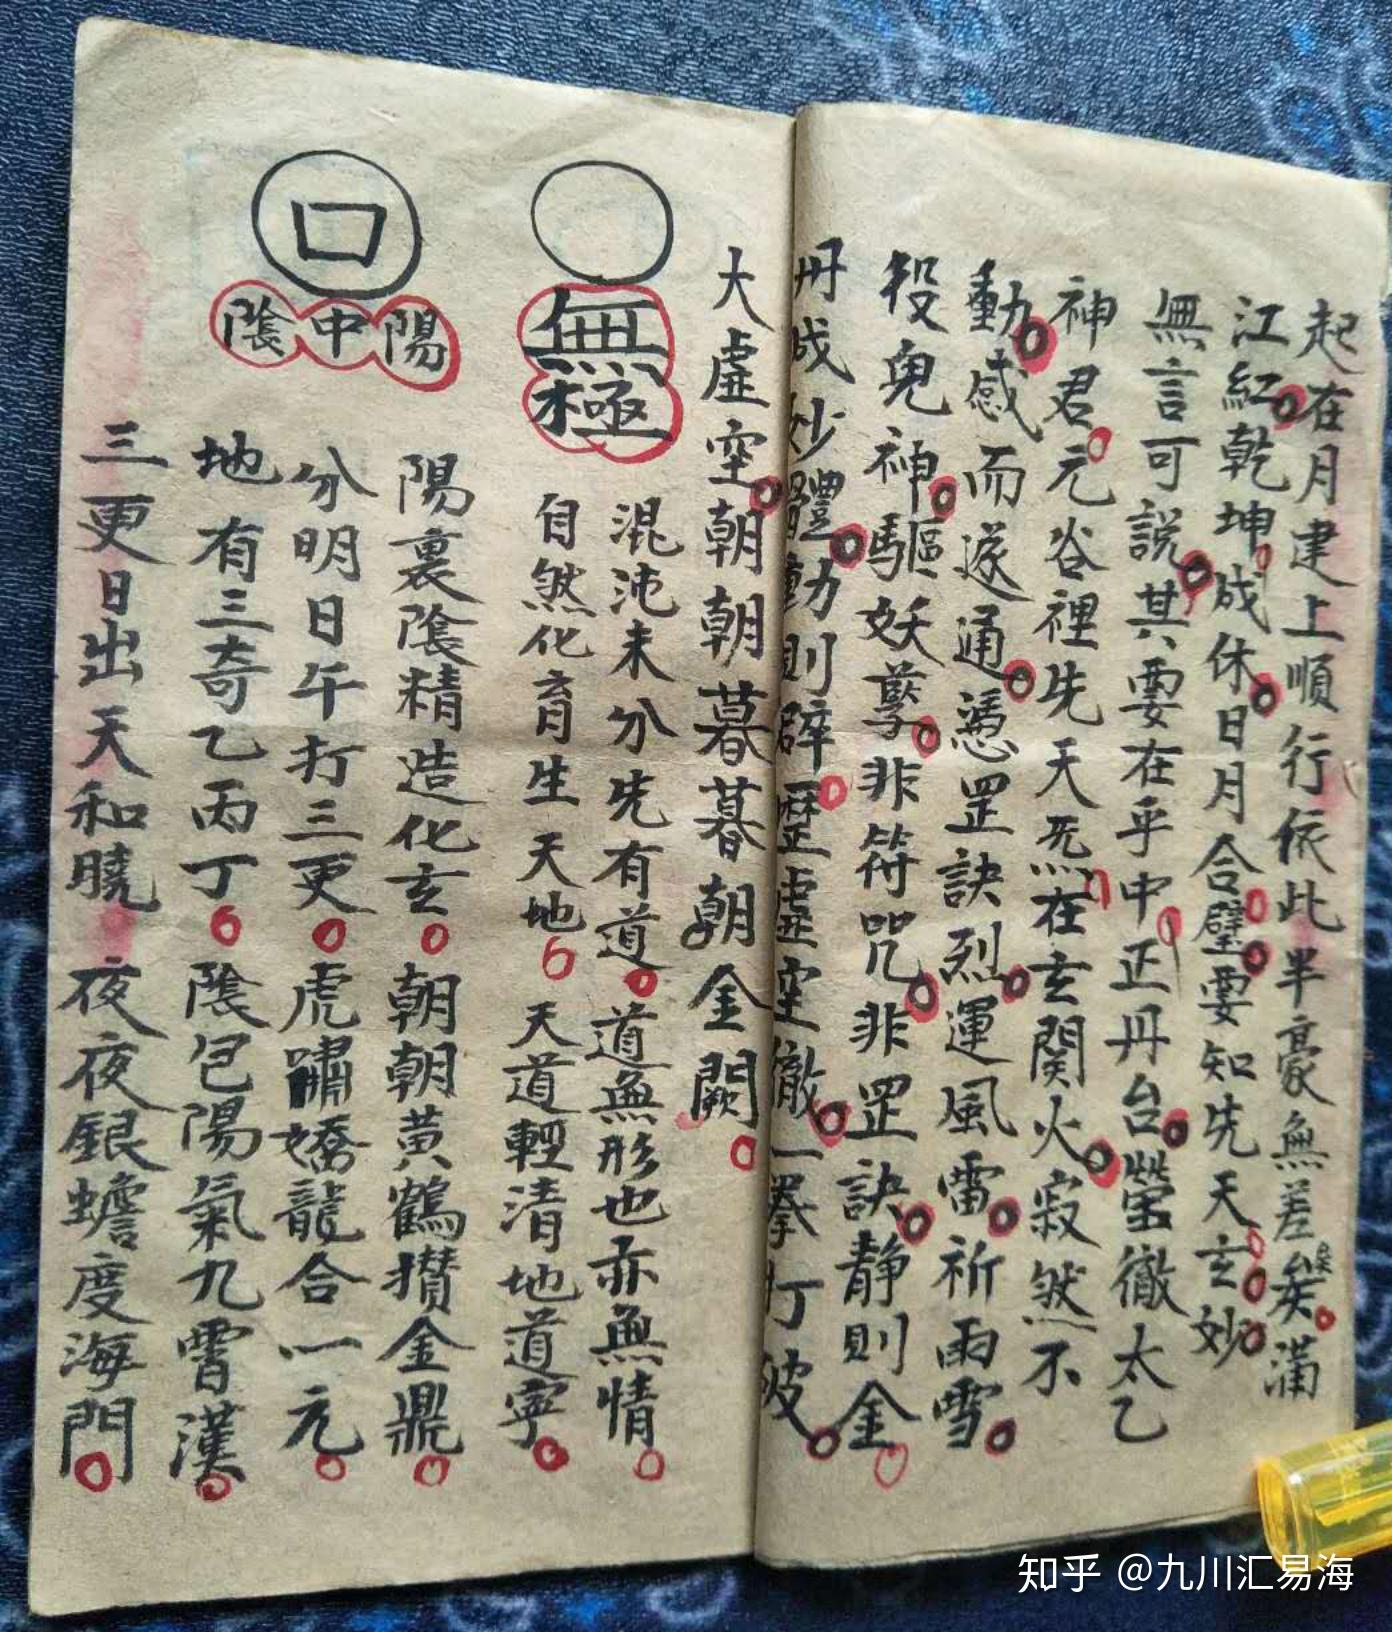 起在月建上順行依此半豪無差矣滿
江紅乾坤成休日月合璧要知先天玄妙
無言可説其要在乎中正丹台瑩徹太乙
神君元谷裡先天炁在玄関火寂然不
動感而遂通憑罡訣烈運風雷祈雨雪
役鬼神驅妖孽非符咒非罡訣静則金
丹成妙體動則辟歷虚空徹一拳打破
大虚空朝朝暮暮朝金闕
無極
混沌未分先有道道無形也亦無情
自然化育生天地天道輕清地道寧
口
陰中陽
陽裏陰精造化玄朝朝黄鶴攢金鼎
分明日午打三更虎嘯嬌龍合一元
地有三奇乙丙丁陰包陽氣九霄漢
三更日出天和曉夜夜銀蟾度海門
知乎 @九川汇易海